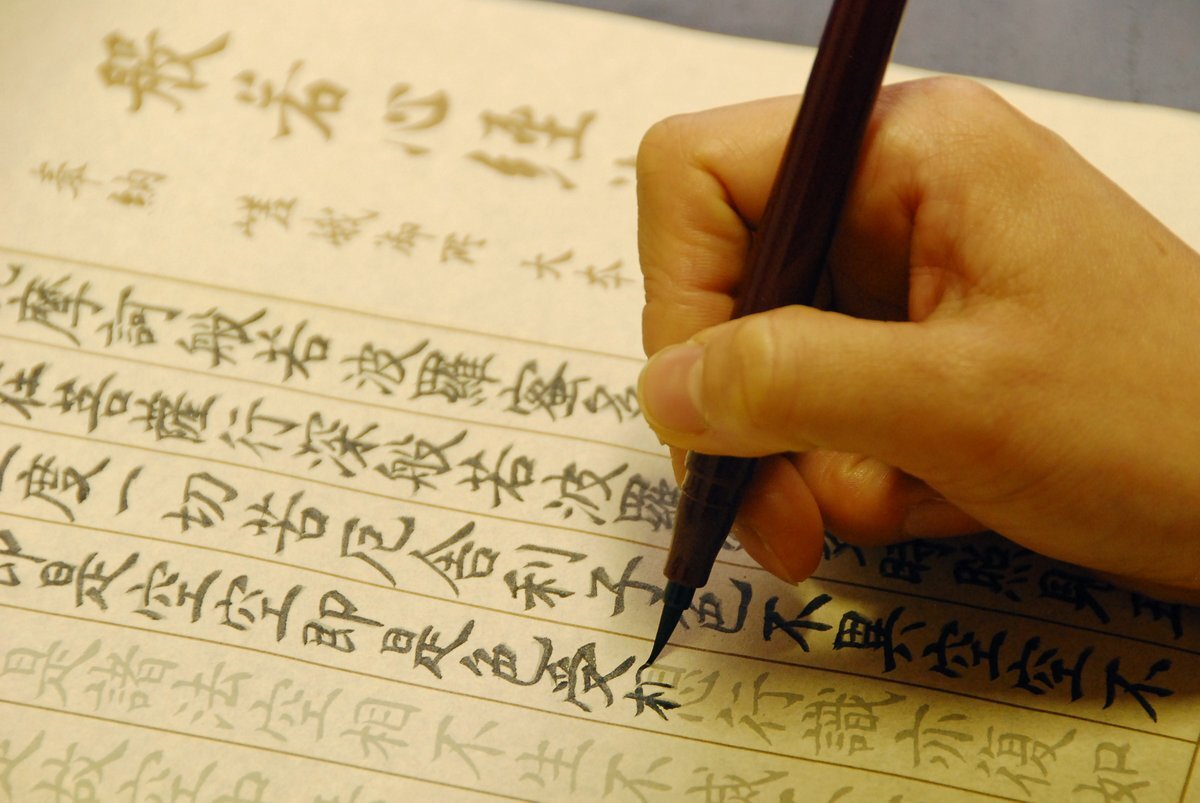 般若心経
奉納 嵯峨御所 大本
摩訶般若波羅蜜多
在菩薩行深般若波羅 時照見五
度一切苦厄舍利子色不異空空不
即是空空即是色受想行識亦復如
是諸法空相不生不滅
是故空中